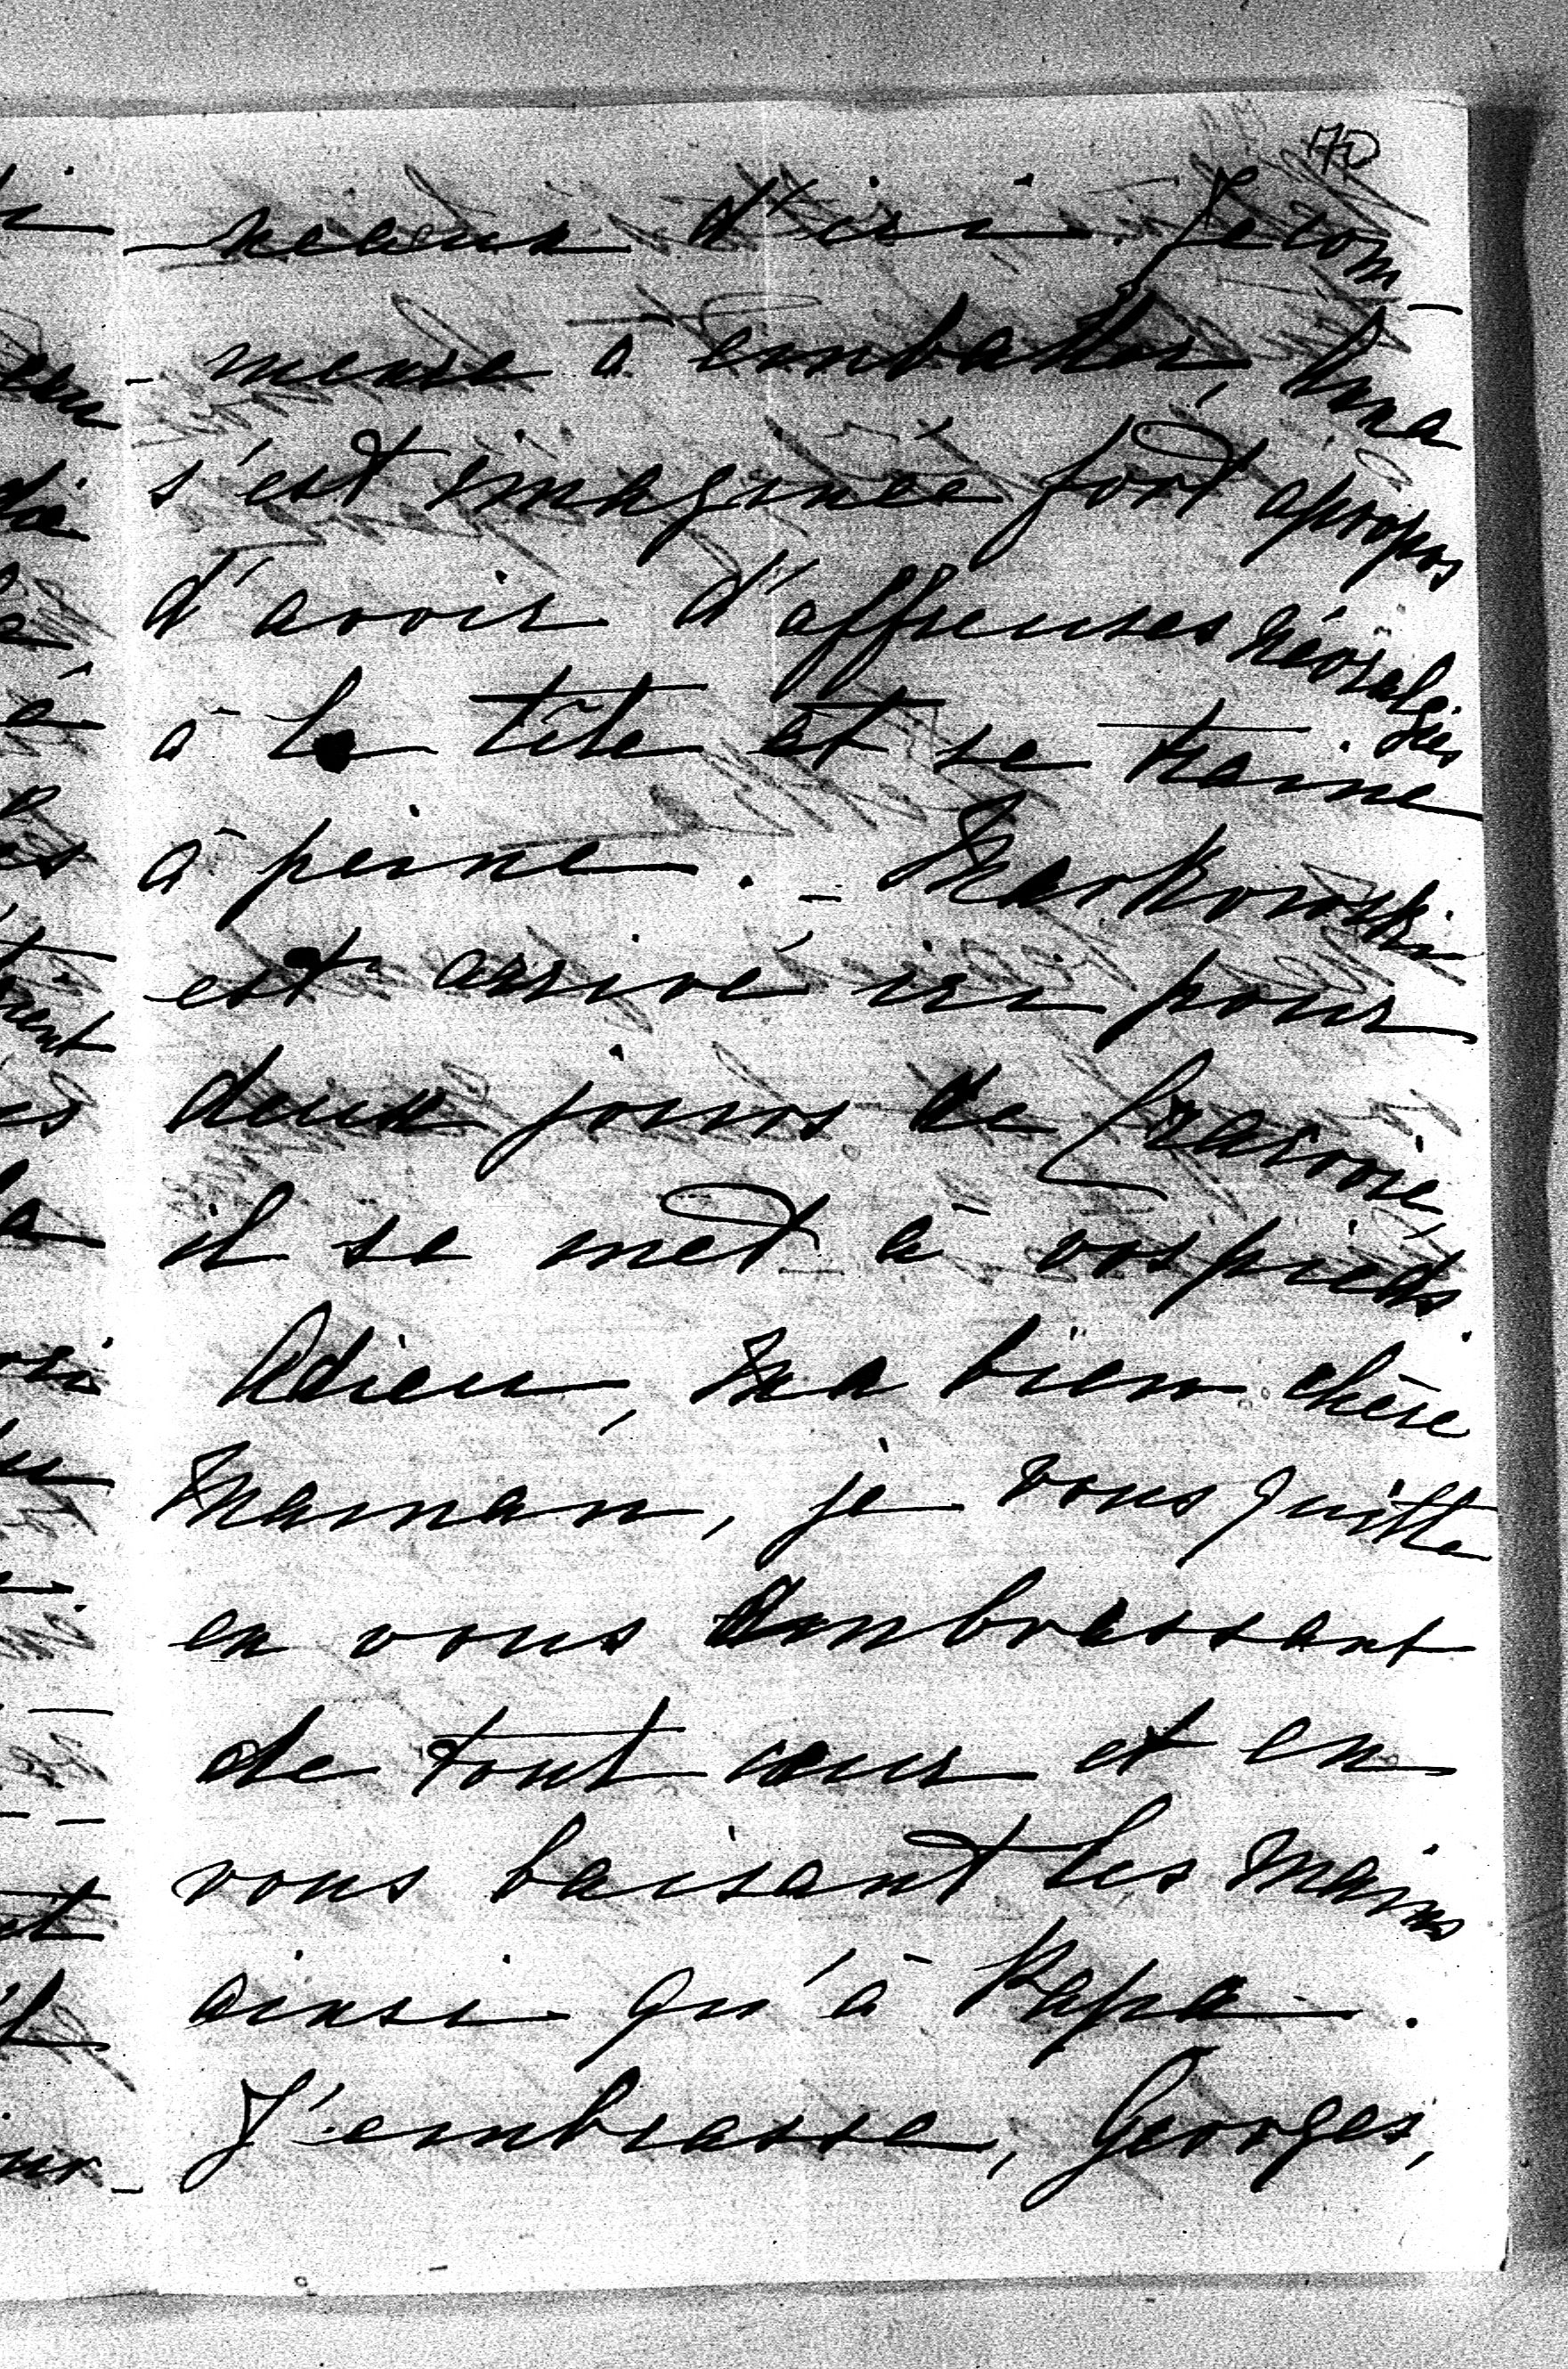 70
-neeurs d'ici. Je com-
-mence à emballer, Anna
s'est imaginée fort apropos
d'avoir d'affreuses névralgies
à la tête et se traine
à peine. – Markowski
est arrivé ici pour
deux jours de Cracovie,
il se met à vos pieds.
Adieu, Ma bien chère
Maman, je vous quitte
en vous embrassant
de tout cœur et en
vous baisant les mains
ainsi qu'à Papa.
J'embrasse, Georges,